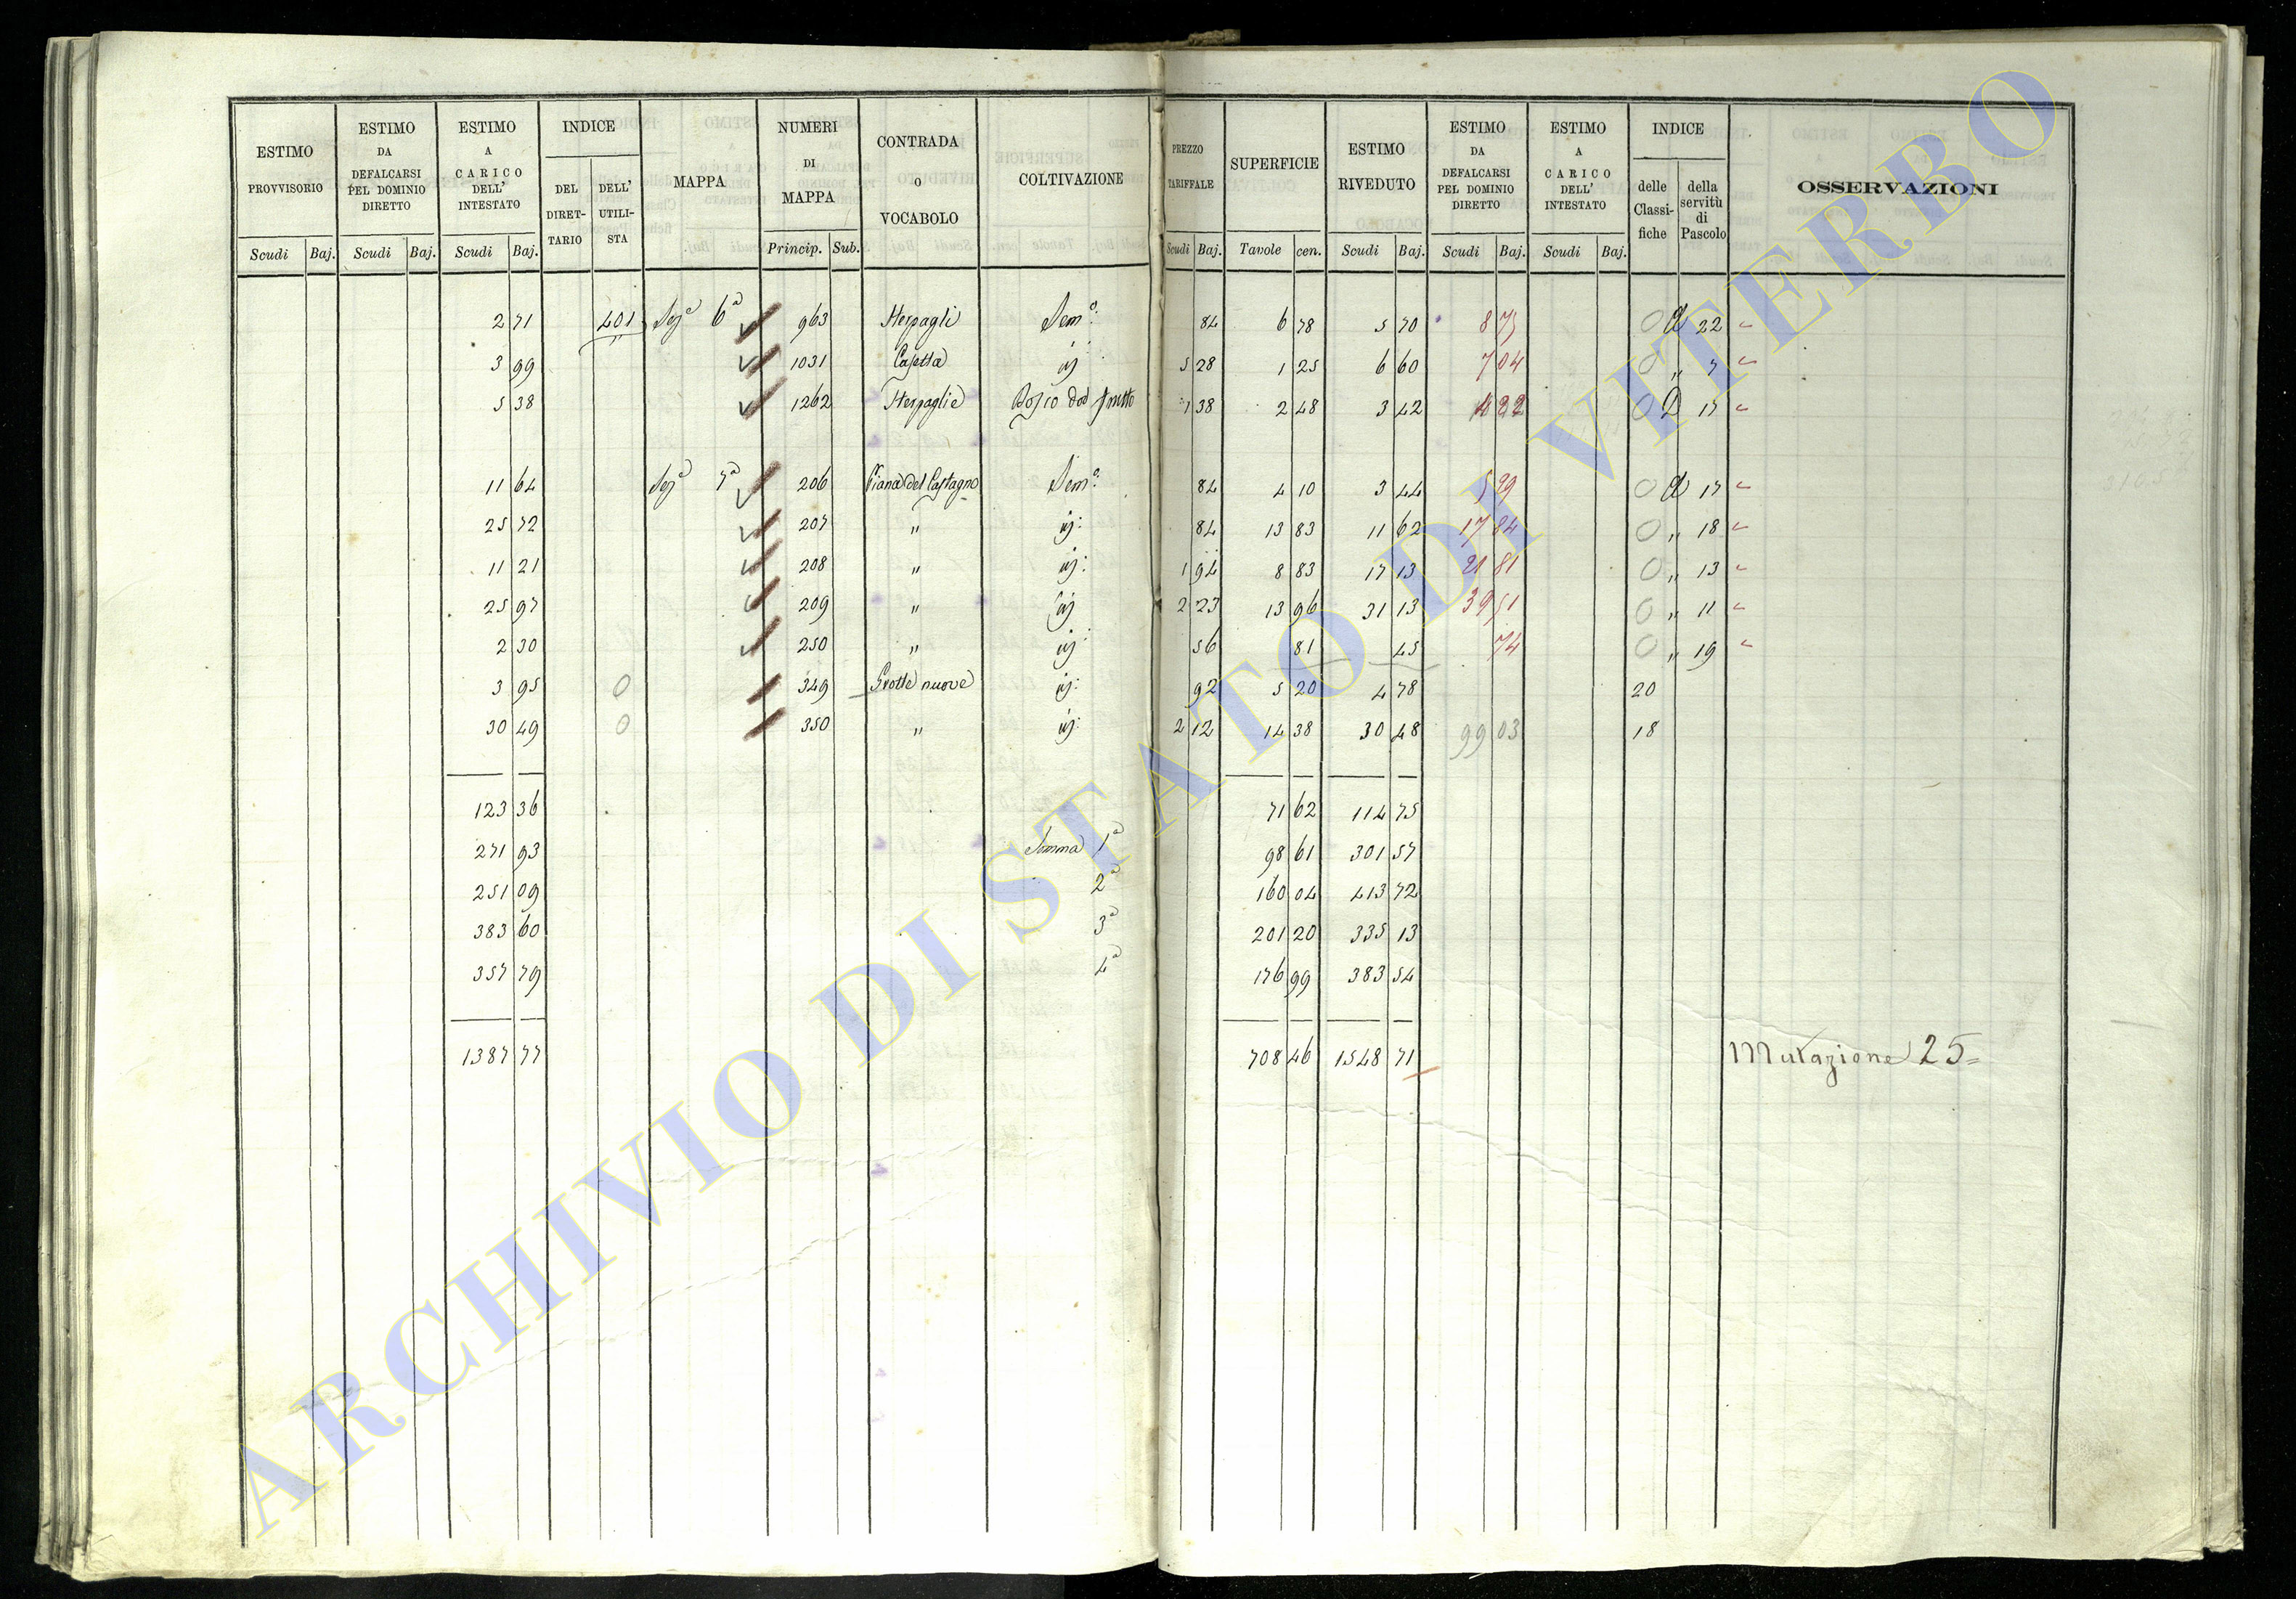 ESTIMO PROVVISORIO | ESTIMO DA DEFALCARSI PEL DOMINIO DIRETTO | ESTIMO A CARICO DELL' INTESTATO | INDICE | MAPPA | NUMERI DI MAPPA | CONTRADA O VOCABOLO | COLTIVAZIONE | PREZZO TARIFFALE | SUPERFICIE | ESTIMO RIVEDUTO | ESTIMO DA DEFALCARSI PEL DOMINIO DIRETTO | ESTIMO A CARICO DELL' INTESTATO | INDICE | OSSERVAZIONI
DEL DIRET-TARIO | DELL' UTILI-STA | delle Classi-fiche | della servitù di Pascolo
Scudi | Baj. | Scudi | Baj. | Scudi | Baj. | Princip. | Sub. | Scudi | Baj. | Tavole | cen. | Scudi | Baj. | Scudi | Baj. | Scudi | Baj.
2 71 | 401 | Sez.e 6a | 963 | Sterpagli | Sem.o | 84 | 6 78 | 5 70 | 8 75 | 0 | 22
3 99 | 1031 | Casetta | id | 5 28 | 1 25 | 6 60 | 7 04 | 0 | " 7
5 38 | 1262 | Sterpaglie | Bosco d frutto | 1 38 | 2 48 | 3 42 | 4 22 | 0 | 17
11 64 | Sez.e 7a | 206 | Piana del Castagno | Sem.o | 84 | 4 10 | 3 44 | 5 29 | 0 | 17
25 72 | 207 | " | id: | 84 | 13 83 | 11 62 | 17 84 | 0 | " 18
11 21 | 208 | " | id: | 1 94 | 8 83 | 17 13 | 21 81 | 0 | " 13
25 97 | 209 | " | id | 2 23 | 13 96 | 31 13 | 39 51 | 0 | " 11
2 30 | 250 | " | id | 56 | 81 | 45 | 74 | 0 | " 19
3 95 | 0 | 349 | Grotte nuove | id: | 92 | 5 20 | 4 78 | 20
30 49 | 0 | 350 | " | id: | 2 12 | 14 38 | 30 48 | 99 03 | 18
123 36 | 71 62 | 114 75
271 93 | Somma 1a | 98 61 | 301 57
251 09 | 2a | 160 04 | 413 72
383 60 | 3a | 201 20 | 335 13
357 79 | 4a | 176 99 | 383 54
1387 77 | 708 46 | 1548 71 | Mutazione 25=
ARCHIVIO DI STATO DI VITERBO